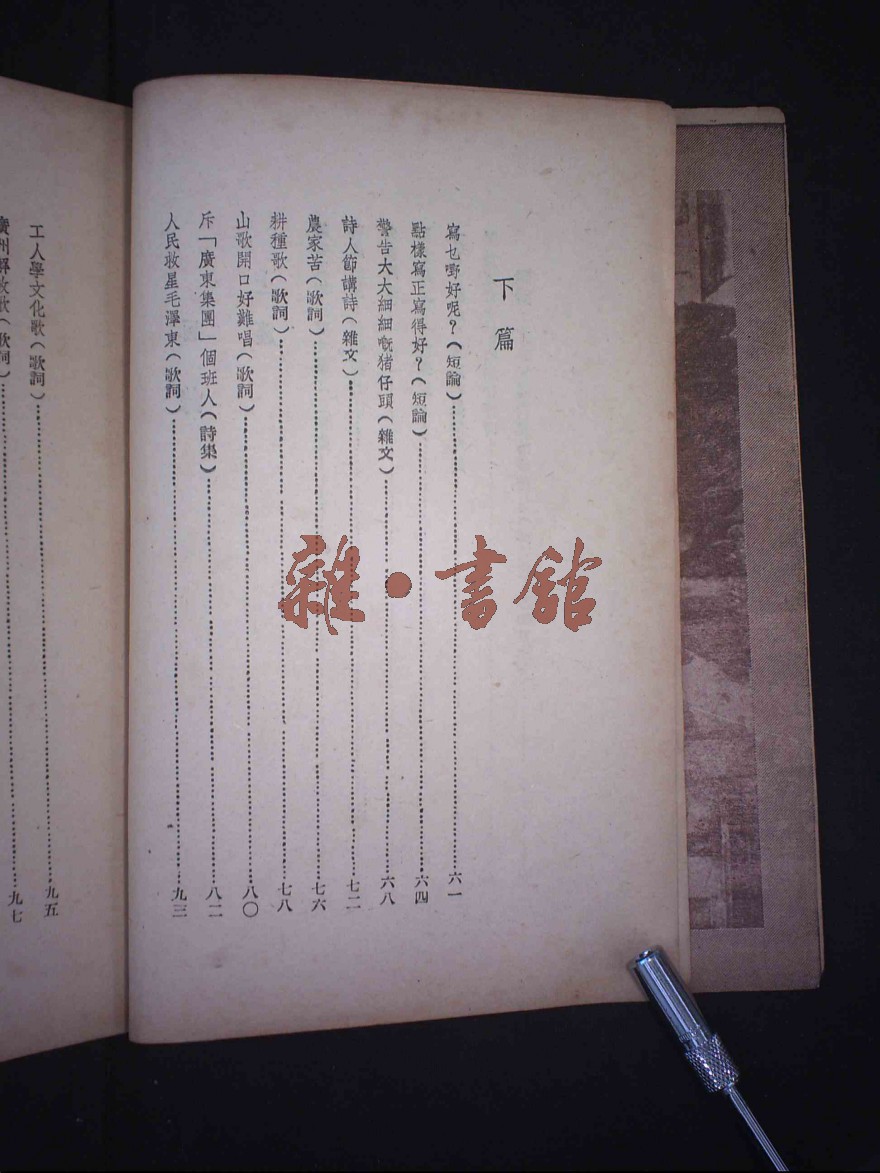 下篇
寫乜嘢好呢？（短論）……六一
點樣寫正寫得好？（短論）……六四
警告大大細細嘅猪仔頭（雜文）……六八
詩人節講詩（雜文）……七二
農家苦（歌詞）……七六
耕種歌（歌詞）……七八
山歌開口好難唱（歌詞）……八〇
斥「廣東集團」個班人（詩集）……八二
人民救星毛澤東（歌詞）……九三
工人學文化歌（歌詞）……九五
廣州解放歌（歌詞）……九七
雜·書館